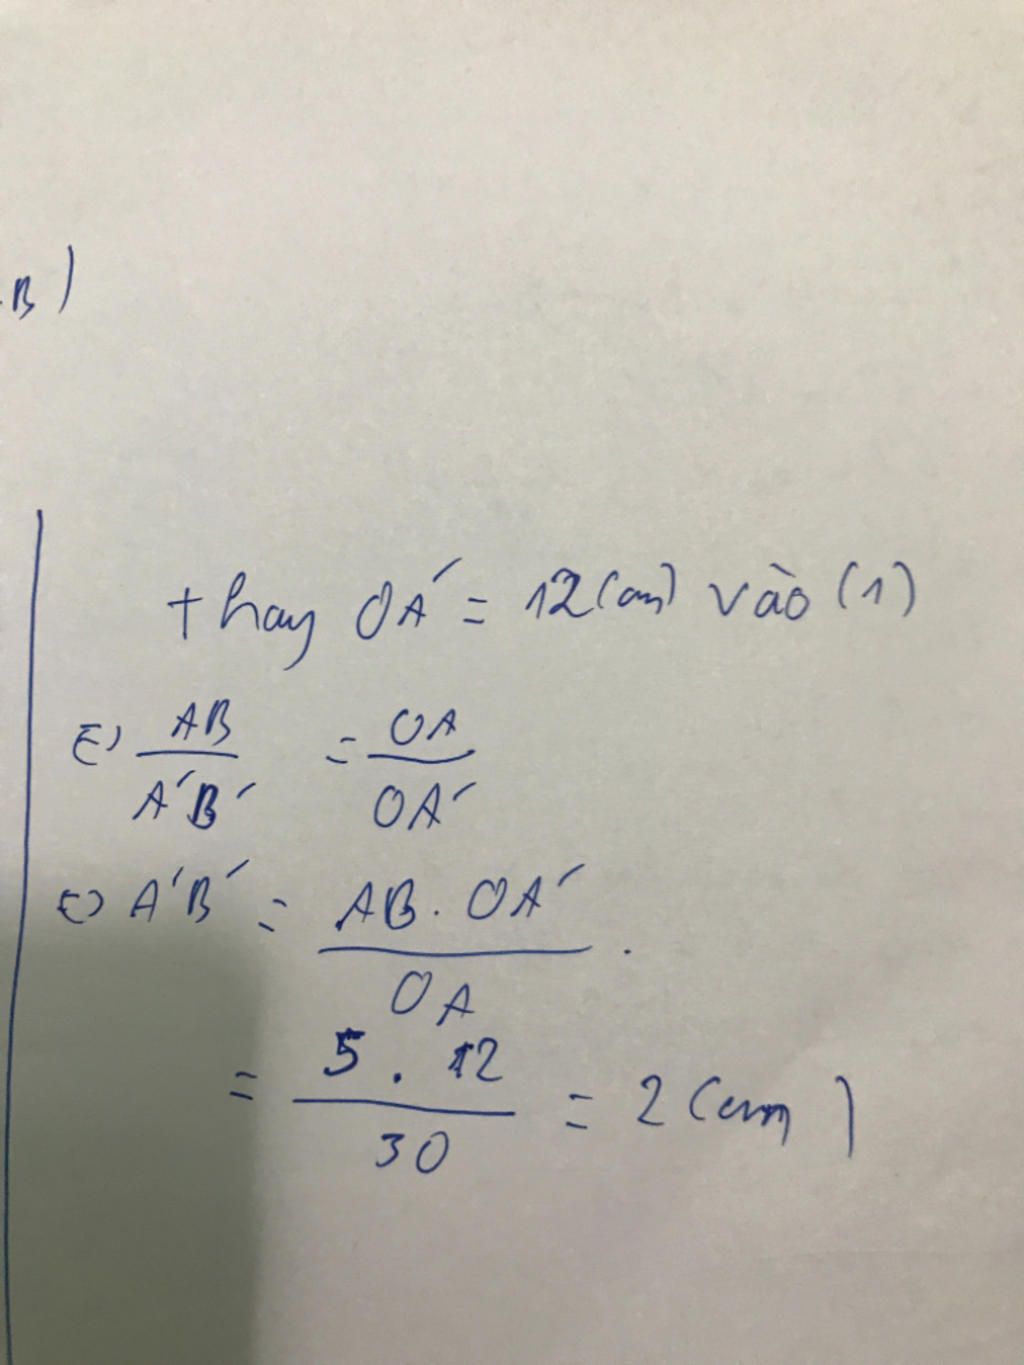 B)
thay OA' = 12(cm) vào (1)
⇔ AB / A'B' = OA / OA'
⇔ A'B' = AB . OA' / OA .
= 5 . 12 / 30 = 2 (cm)